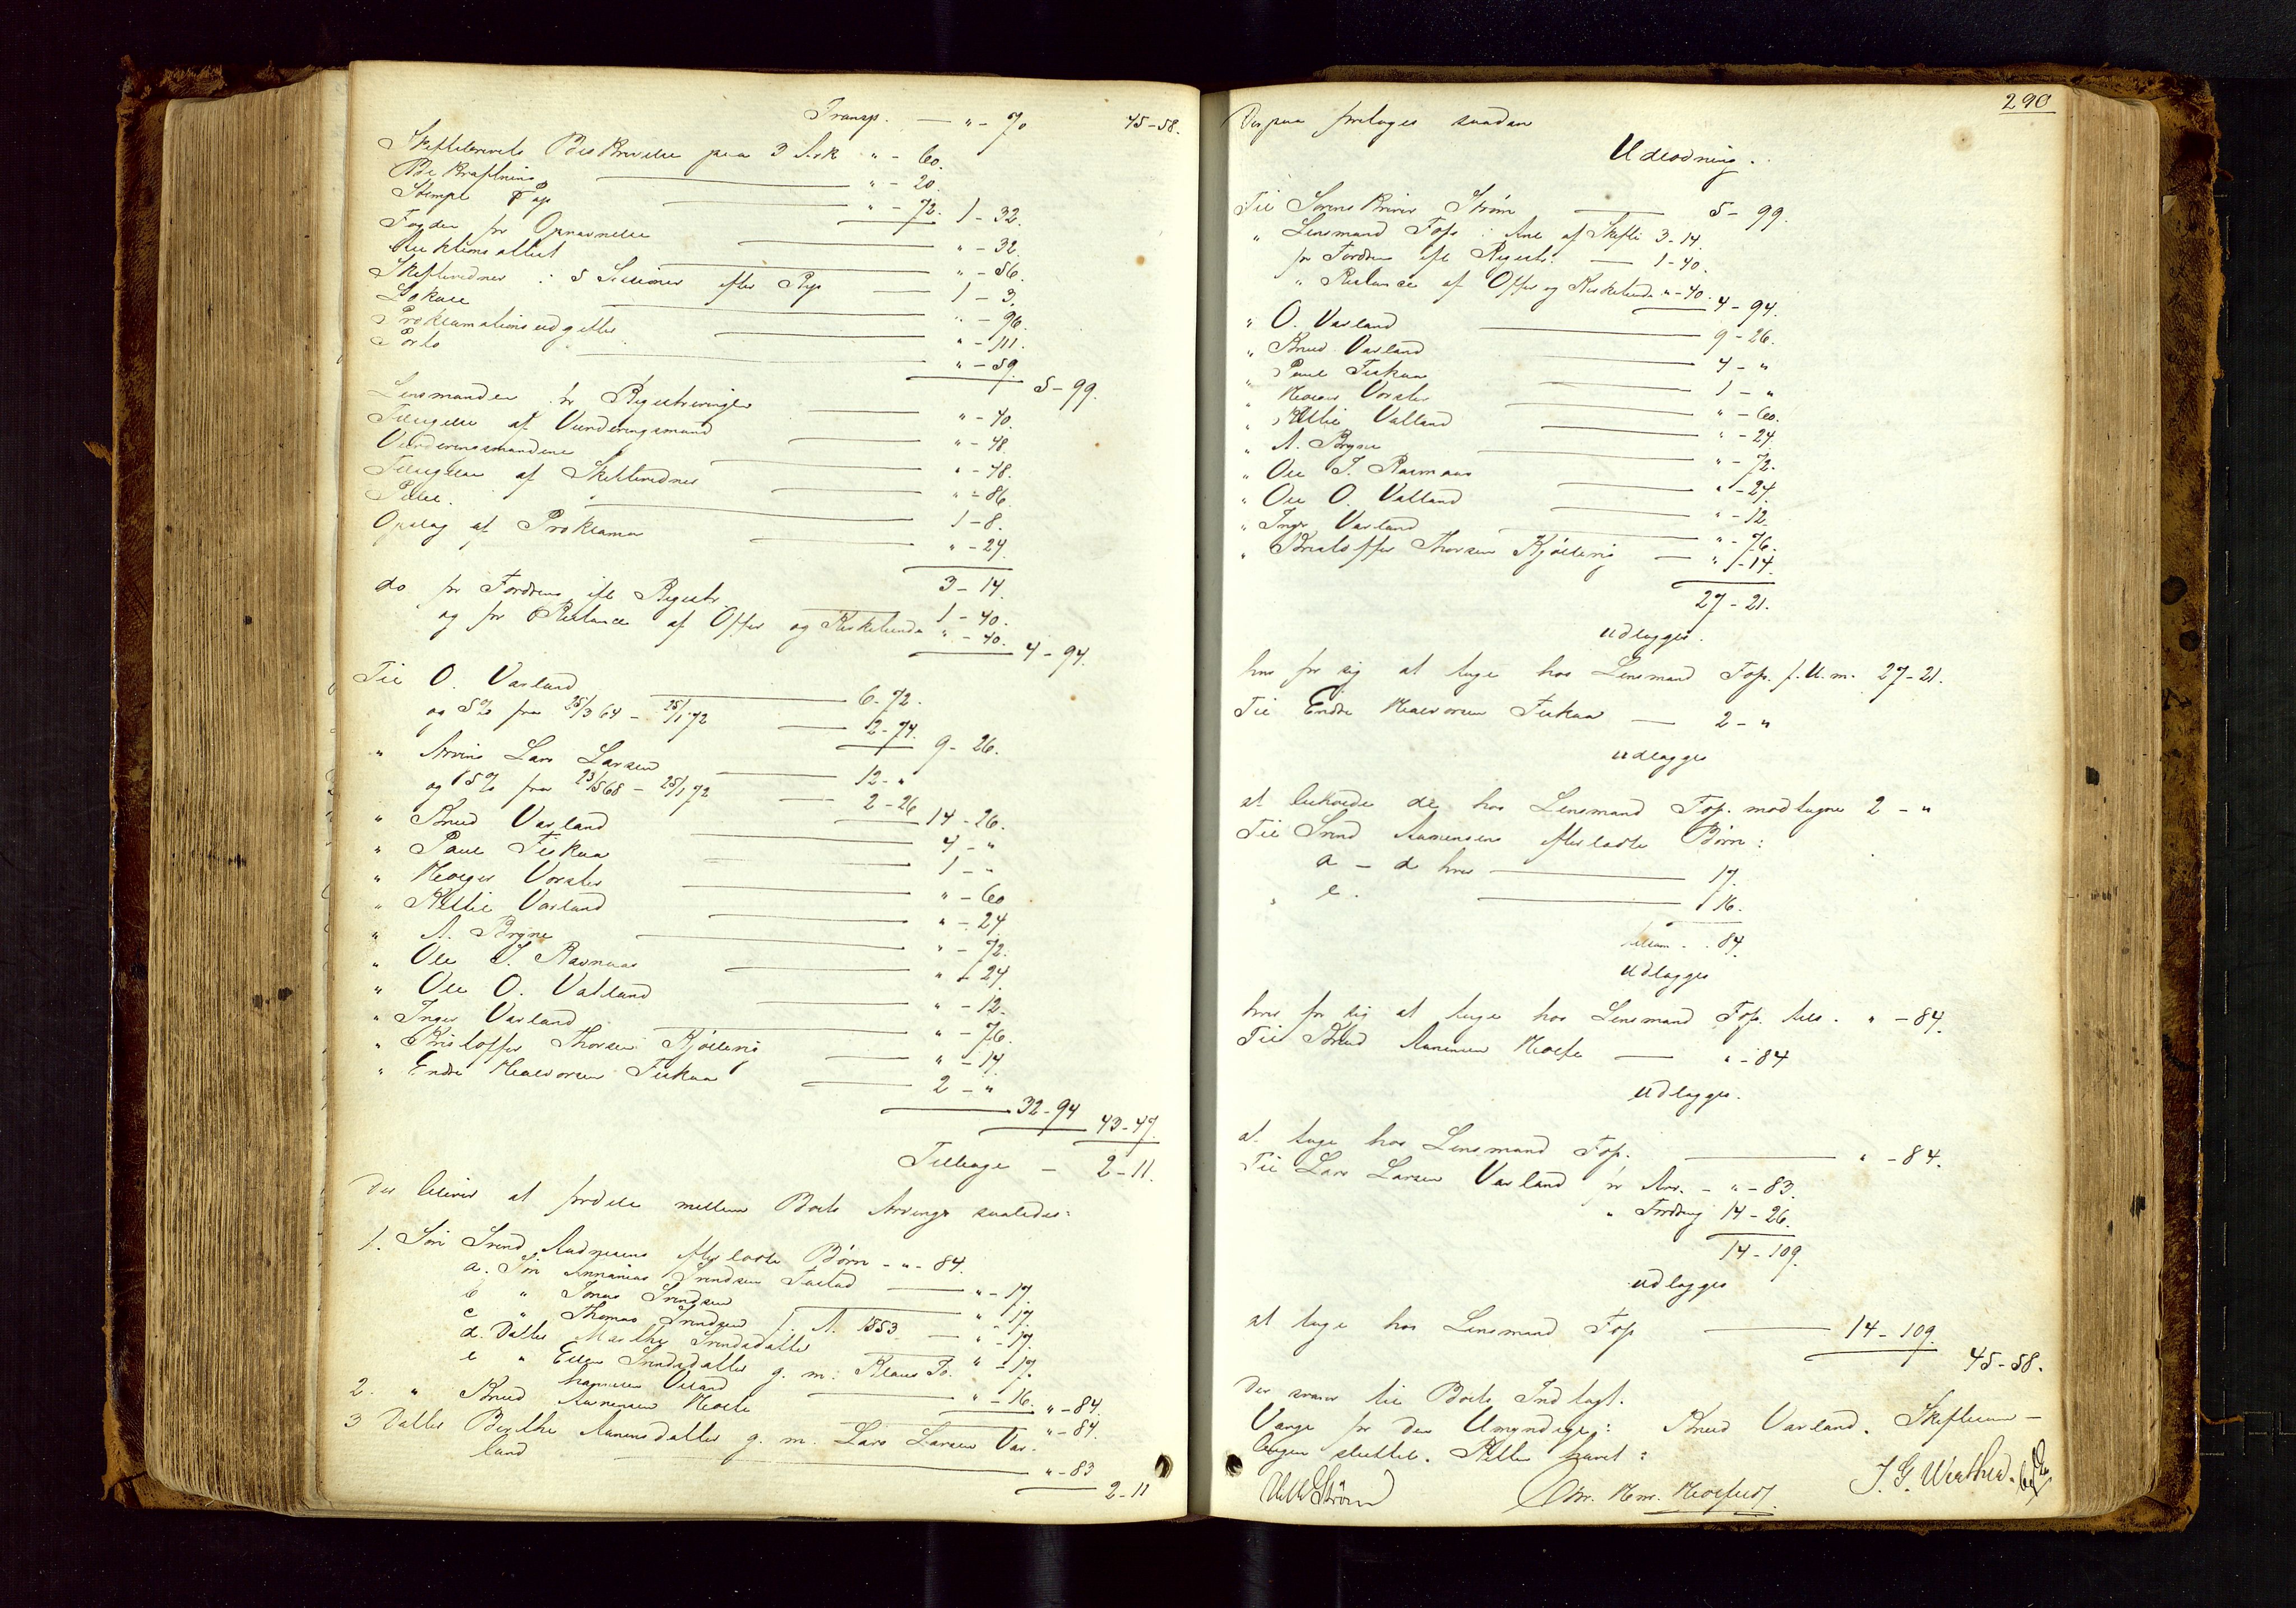 Transp. — " - 70 45-58.
Skiftebrevets Beskrivelse paa 3 Ark " - 60.
Bekræftning — " - 20.
Stempl Pap — " - 72. 1 - 32.
Fogden for Opnævnelse — " - 32.
Auktionsattest — " - 56.
Skiftevidner i 5 Sessioner efter Reg — 1 - 3.
Lokale — " - 96.
Proklamationsudgifter — " - 111.
Porto — " - 59.
5 - 99.
Lensmanden for Registreringen — " - 40.
Tilsigelse af Vurderingsmænd — " - 48.
Vurderingsmændene — " - 48.
Tilsigelse af Skiftevidner — " - 86.
1 - 8.
Opslag af Proklama — " - 24.
3 - 14.
do for Fordring ifl Registr. 1 - 40.
og for Restance af Offer og Kirketiende " - 40. 4 - 94.
Til O. Varland — 6-72.
og 5% fra 25/3 64 - 25/1 72 — 2-74. 9 - 26.
" Arving Lars Larsen — 12 - "
og 5% fra 23/5 68 - 25/1 72 — 2 - 26 14 - 26.
" Knud Varland — 4 - "
" Paul Fiskaa — 1 - "
" Holger Vorster — " - 60
" Kittil Varland — " - 24.
" A. Bryne — " - 72.
" Ole I. Ravnaas — " - 24.
" Ole O. Valland — " - 12.
" Inger Varland — " - 76.
" Kristoffer Thorsen Kjøllevig — " - 14.
" Endre Halvorsen Fiskaa — 2 - "
32-94 43-47.
Tilbage — 2-11.
der bliver at fordele mellem Boets Arvinge saaledes:
1. Søn Svend Aadnesens efterladte Børn - " - 84.
a. Søn Annanias Svendsen — " - 17.
b " Jonas Svendsen — " 17.
c " Thomas Svendsen f. A. 1853 — " - 17.
d. Datter Marthe Svendsdatter — " - 17.
e " Ellen Svendsdatter g. m. Klaus To-
" - 16. " - 84.
2. " Knud Aanensen — " - 84.
3 Datter Berthe Aanensdatter g. m. Lars Larsen Var-
land — " - 83
2 - 11
290
Derpaa foretages saadan
Udlodning.
Til Sorenskriver Strøm — 5 - 99.
" Lensmand Fop: Anl af Skifte 3-14.
for Fordring ifl Registr. — 1-40.
" Restance af Offer og Kirketiende " - 40. 4 - 94.
" O. Varland — 9 - 26.
" Knud Varland — 4 - "
" Paul Fiskaa — 1 - "
" Holger Vorster — " - 60.
" Kittil Valland — " - 24.
" A. Bryne — " - 72.
" Ole I. Ravnaas — " - 24.
" Ole O. Valland — " - 12.
" Inger Varland — " - 76.
" Kristoffer Thorsen Kjøllevig — " - 14.
27 - 21.
udlægges.
hver for sig at tage hos Lensmand Fop. f. U. m. 27-21.
Til Endre Halvorsen Fiskaa — 2 - "
udlægges
at beholde de hos Lensmand Fop. modtagne 2 - "
Til Svend Aanensens efterladte Børn:
a - d hver — 17.
" e. — 16.
tilsam. . 84.
udlægges
hver for sig at tage hos Lensmand Fop. tils. " - 84.
Til Knud Aanensen — " - 84
udlægges.
at tage hos Lensmand Fop. — " - 84.
Til Lars Larsen Varland for Arv. - " - 83.
" Fordring 14 - 26.
14 - 109.
udlægges
at tage hos Lensmand Fop — 14 - 109.
45-58.
der svarer til Boets Indtægt.
Værge for den Umyndige: Knud Varland. Skiftesam-
lingen sluttet. Retten hævet:
Strøm